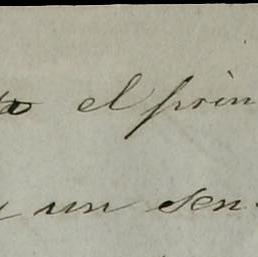 el prin
un sen